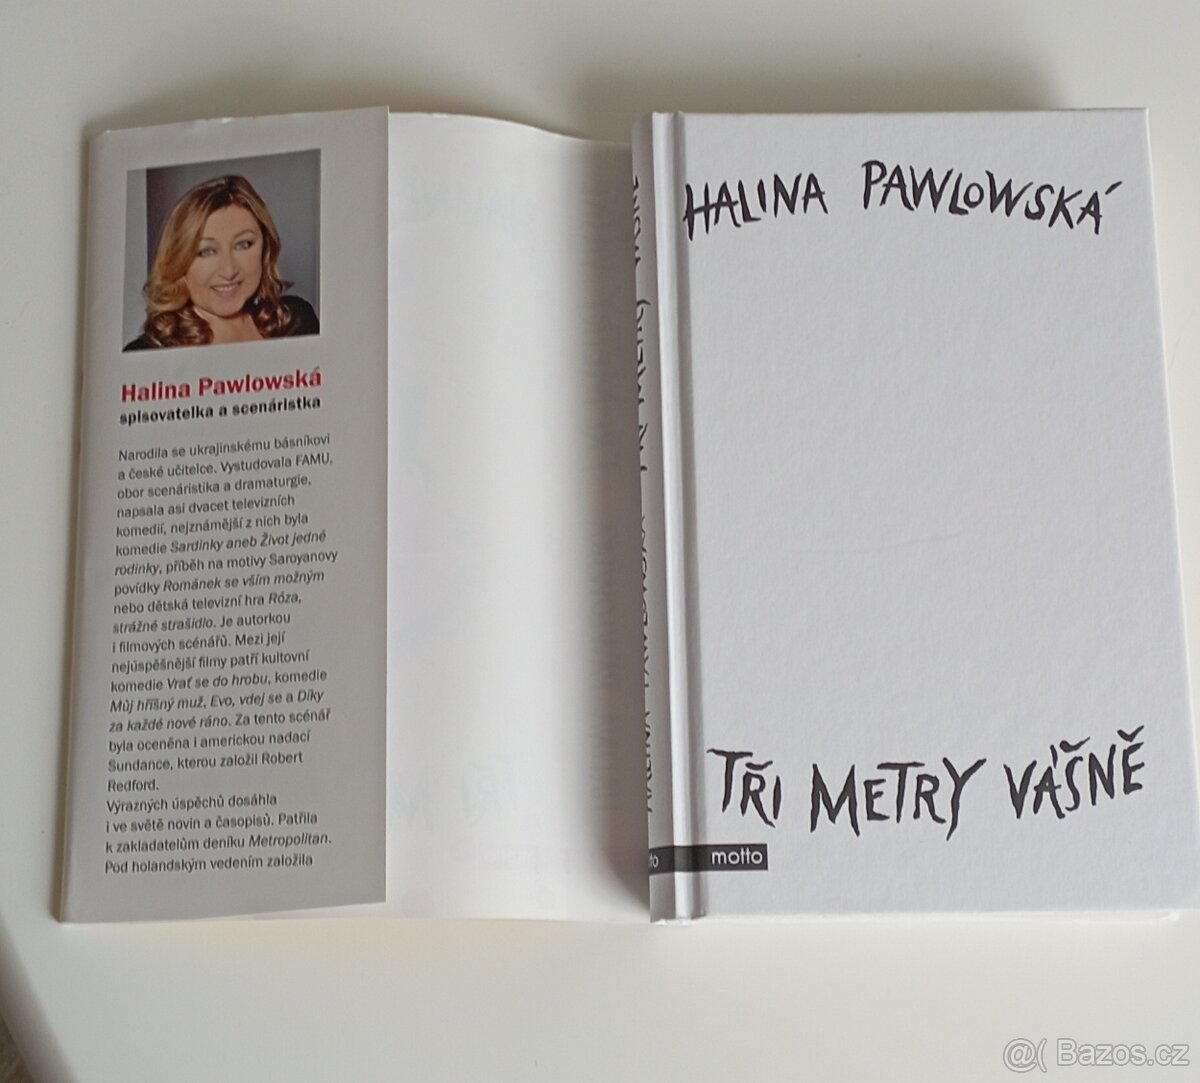 Halina Pawlowská
spisovatelka a scenáristka
Narodila se ukrajinskému básníkovi
a české učitelce. Vystudovala FAMU,
obor scenáristika a dramaturgie,
napsala asi dvacet televizních
komedií, nejznámější z nich byla
komedie Sardinky aneb Život jedné
rodinky, příběh na motivy Saroyanovy
povídky Románek se vším možným
nebo dětská televizní hra Róza,
strážné strašidlo. Je autorkou
i filmových scénářů. Mezi její
nejúspěšnější filmy patří kultovní
komedie Vrať se do hrobu, komedie
Můj hříšný muž, Evo, vdej se a Díky
za každé nové ráno. Za tento scénář
byla oceněna i americkou nadací
Sundance, kterou založil Robert
Redford.
Výrazných úspěchů dosáhla
i ve světě novin a časopisů. Patřila
k zakladatelům deníku Metropolitan.
Pod holandským vedením založila
HALINA PAWLOWSKÁ TŘI METRY VÁŠNĚ
HALINA PAWLOWSKÁ
TŘI METRY VÁŠNĚ
motto
@( Bazos.cz